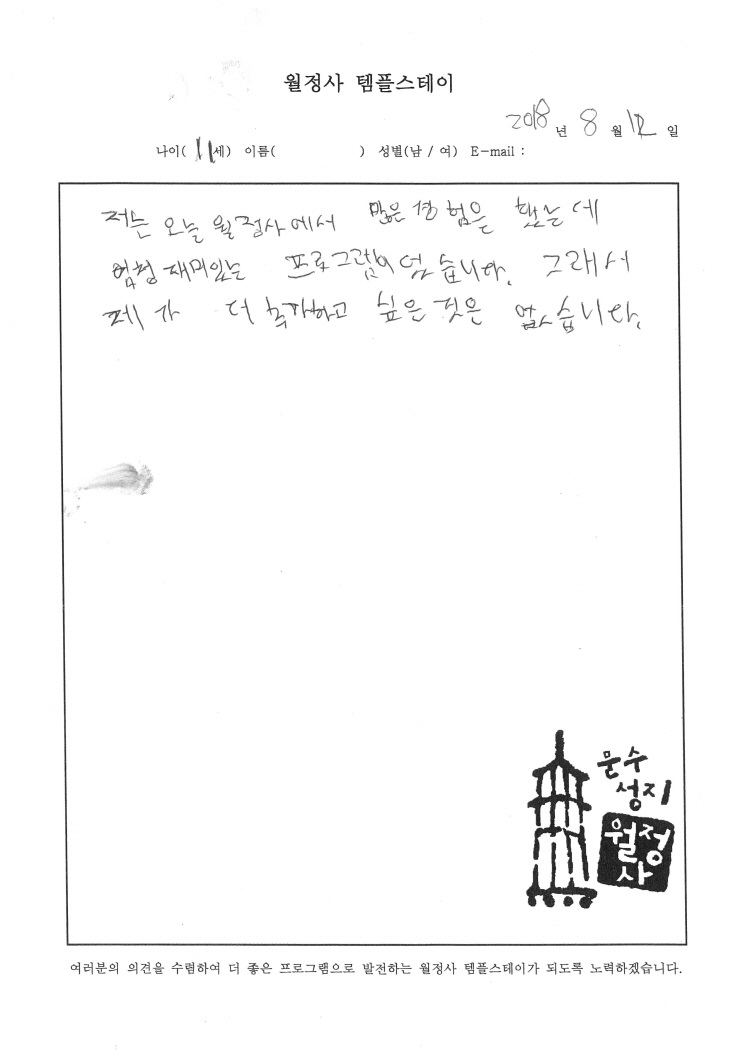 월정사 템플스테이
2018년 8월 12일
나이( 11세) 이름( ) 성별(남 / 여) E-mail :
저는 오늘 월정사에서 많은 경험은 했는데
엄청 재미있는 프로그램이 었습니다. 그래서
제가 더 추가하고 싶은 것은 없습니다.
문수
성지
월정
사
여러분의 의견을 수렴하여 더 좋은 프로그램으로 발전하는 월정사 템플스테이가 되도록 노력하겠습니다.